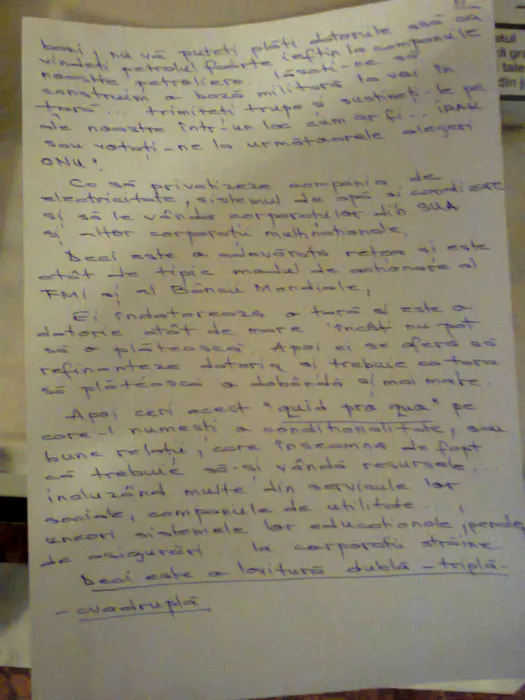 bani, nu vă puteți plăti datoriile așa că
vindeți petrolul foarte ieftin la companiile
noastre petroliere. lăsați-ne să
construim o bază militară la voi în
țară... trimiteți trupe să susțineți-le pe
ale noastre într-un loc cum ar fi... IRAK
sau votați-ne la următoarele alegeri
ONU!
Ca să privatizeze compania de
electricitate, sistemul de apă și
și să le vândă corporațiilor din SUA
și altor corporații multinaționale.
Deci este o adevărată rețea și este
atât de tipic modul de acționare al
FMI și al Băncii Mondiale,
Ei îndatorează o țară și este o
datorie atât de mare încât nu pot
să o plătească. Apoi ei se oferă să
refinanțeze datoria și trebuie ca țara
să plătească o dobândă și mai mare.
Apoi ceri acest "quid pra qua" pe
care-l numești o condiționalitate, sau
bune relații, care înseamnă de fapt
că trebuie să-și vândă resursele...
incluzând multe din serviciile lor
sociale, companiile de utilitate...,
uneori sistemele lor educaționale,
de asigurări .. la corporații străine
Deci este o lovitură dublă - triplă -
- cvadruplă.